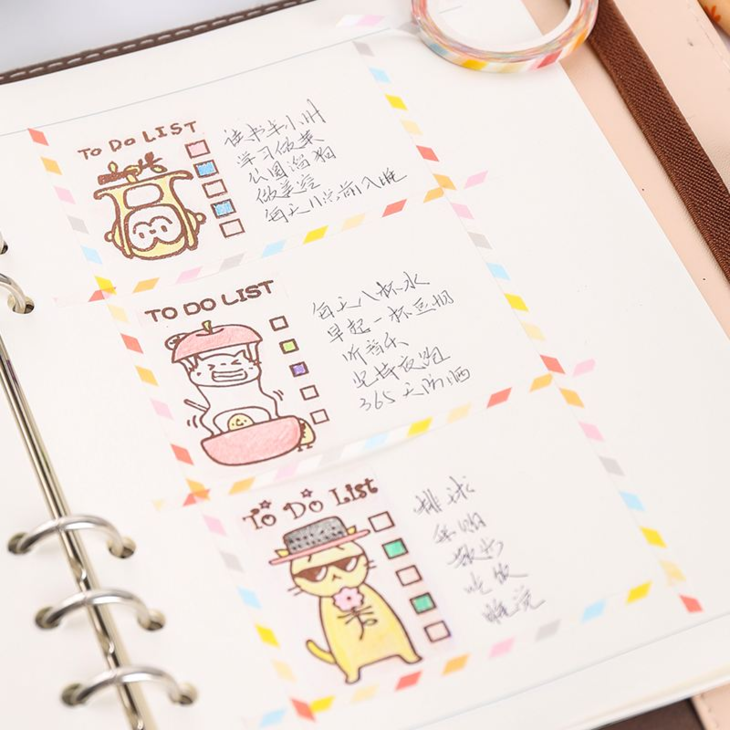 TO DO LIST
读书半小时
学习做菜
公园遛狗
做美缝
每天11点前入睡
TO DO LIST
每天八杯水
早起一杯豆浆
听音乐
坚持夜跑
365天防晒
To Do List
排球
采购
散步
吃饭
睡觉